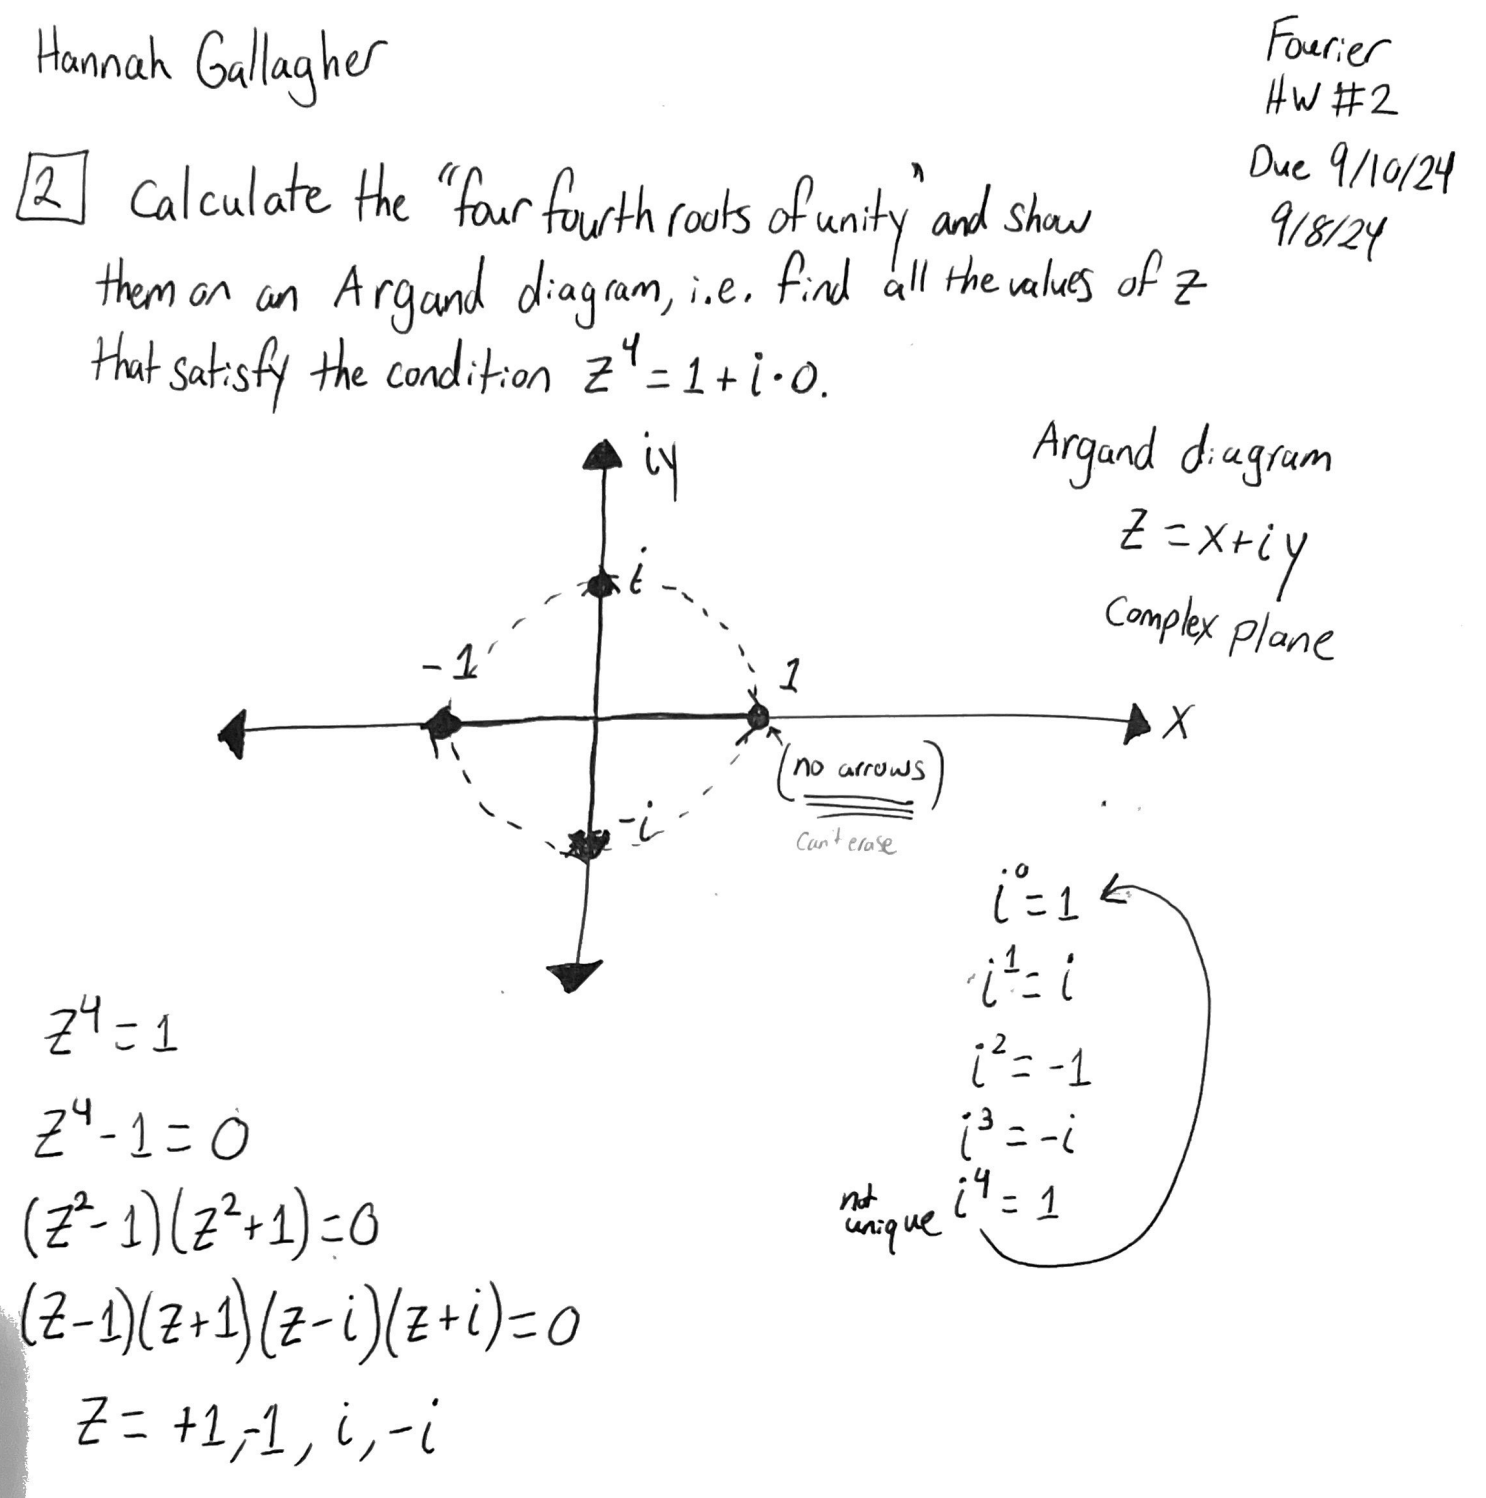 Hannah Gallagher
Fourier
HW #2
Due 9/10/24
9/8/24
2 Calculate the "four fourth roots of unity" and show
them on an Argand diagram, i.e. find all the values of z
that satisfy the condition z⁴ = 1 + i · 0.
iy
i
-1
1
x
-i
(no arrows)
can't erase
Argand diagram
z = x + iy
Complex plane
i⁰ = 1
i¹ = i
i² = -1
i³ = -i
not unique i⁴ = 1
z⁴ = 1
z⁴ - 1 = 0
(z² - 1)(z² + 1) = 0
(z - 1)(z + 1)(z - i)(z + i) = 0
z = +1, -1, i, -i